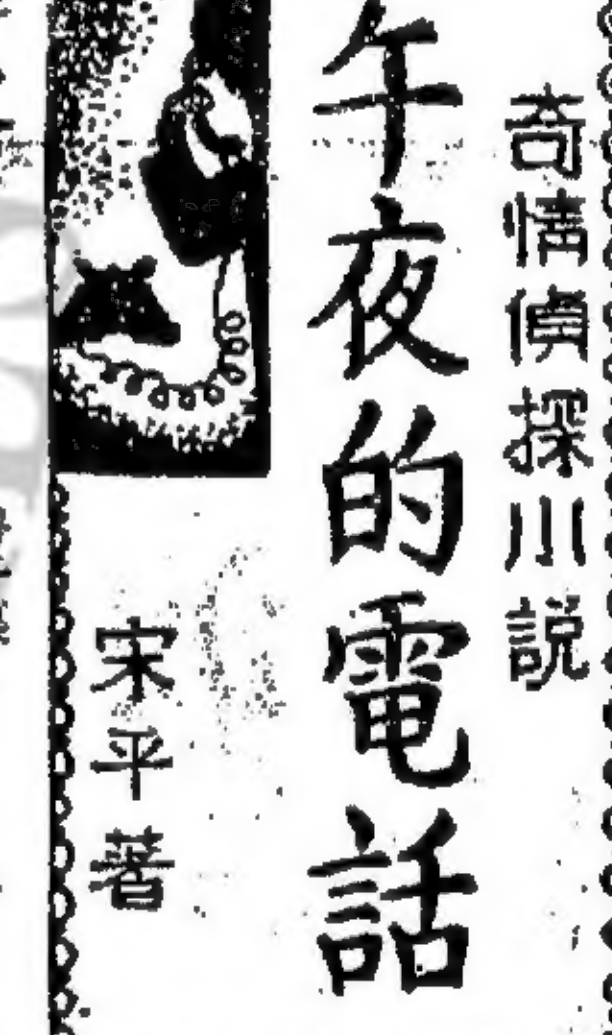 奇情偵探小説
午夜的電話
宋平著